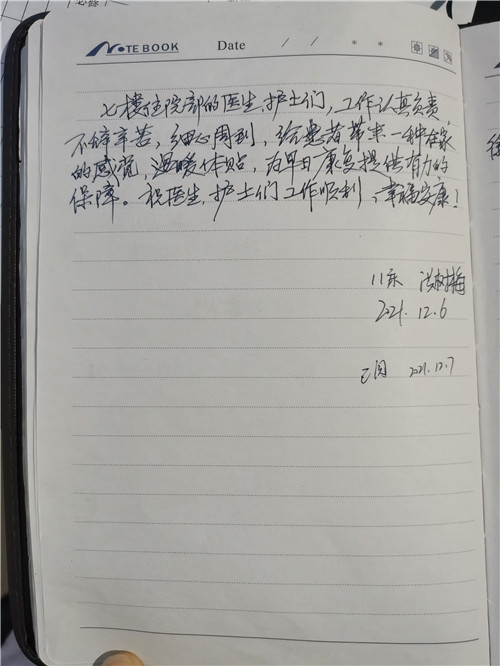 NOTEBOOK Date / / * *
七楼住院部的医生、护士们，工作认真负责，
不辞辛苦，细心周到，给患者带来一种在家
的感觉，温暖体贴，为早日康复提供有力的
保障。祝医生、护士们工作顺利、幸福安康！
2021.12.6
已阅 2021.12.7